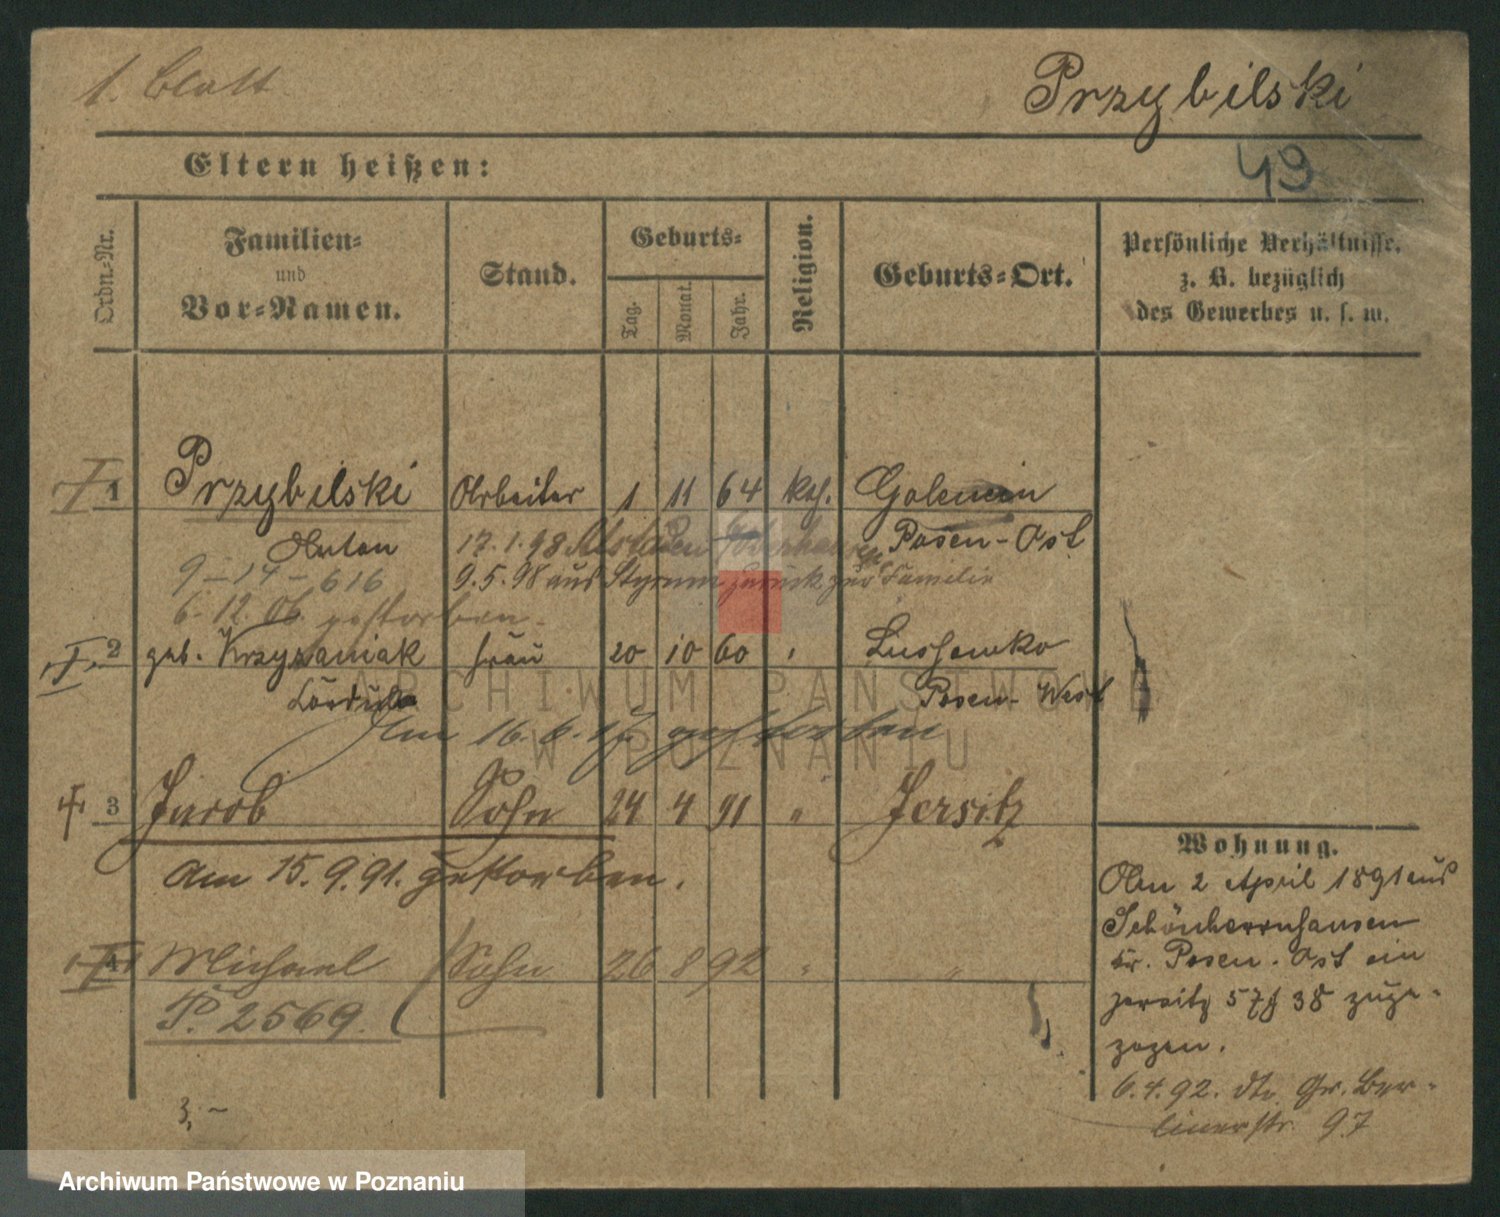 1. Blatt
Przybilski
Eltern heißen:
49
Ordn.-Nr.
Familien-
und
Vor-Namen.
Stand.
Geburts-
Tag.
Monat.
Jahr.
Religion.
Geburts-Ort.
Persönliche Verhältnisse,
z. B. bezüglich
des Gewerbes u. s. w.
1 Przybilski Arbeiter 1 11 64 kth. Golencin
Anton Posen-Ost
17.1.98
9-14-616
9.5.98 aus Styrum zurück zur Familie
6.12.06. gestorben.
2 geb. Krzyzaniak Frau 20 10 60 Lussowko
Posen-West
Am 16.6.17. gestorben
3 Jacob Sohn 24 4 91 " Jersitz
Am 15.9.91. gestorben.
4 Michael Sohn 26 8 92 " "
P. 2569.
3,-
Wohnung.
Am 2 April 1891 aus
Schönherrnhausen
Kr. Posen-Ost ein
Jersitz 57 38 zuge-
zogen.
6.4.92. dto Gr. Ber-
linerstr. 97
ARCHIWUM PAŃSTWOWE
W POZNANIU
Archiwum Państwowe w Poznaniu